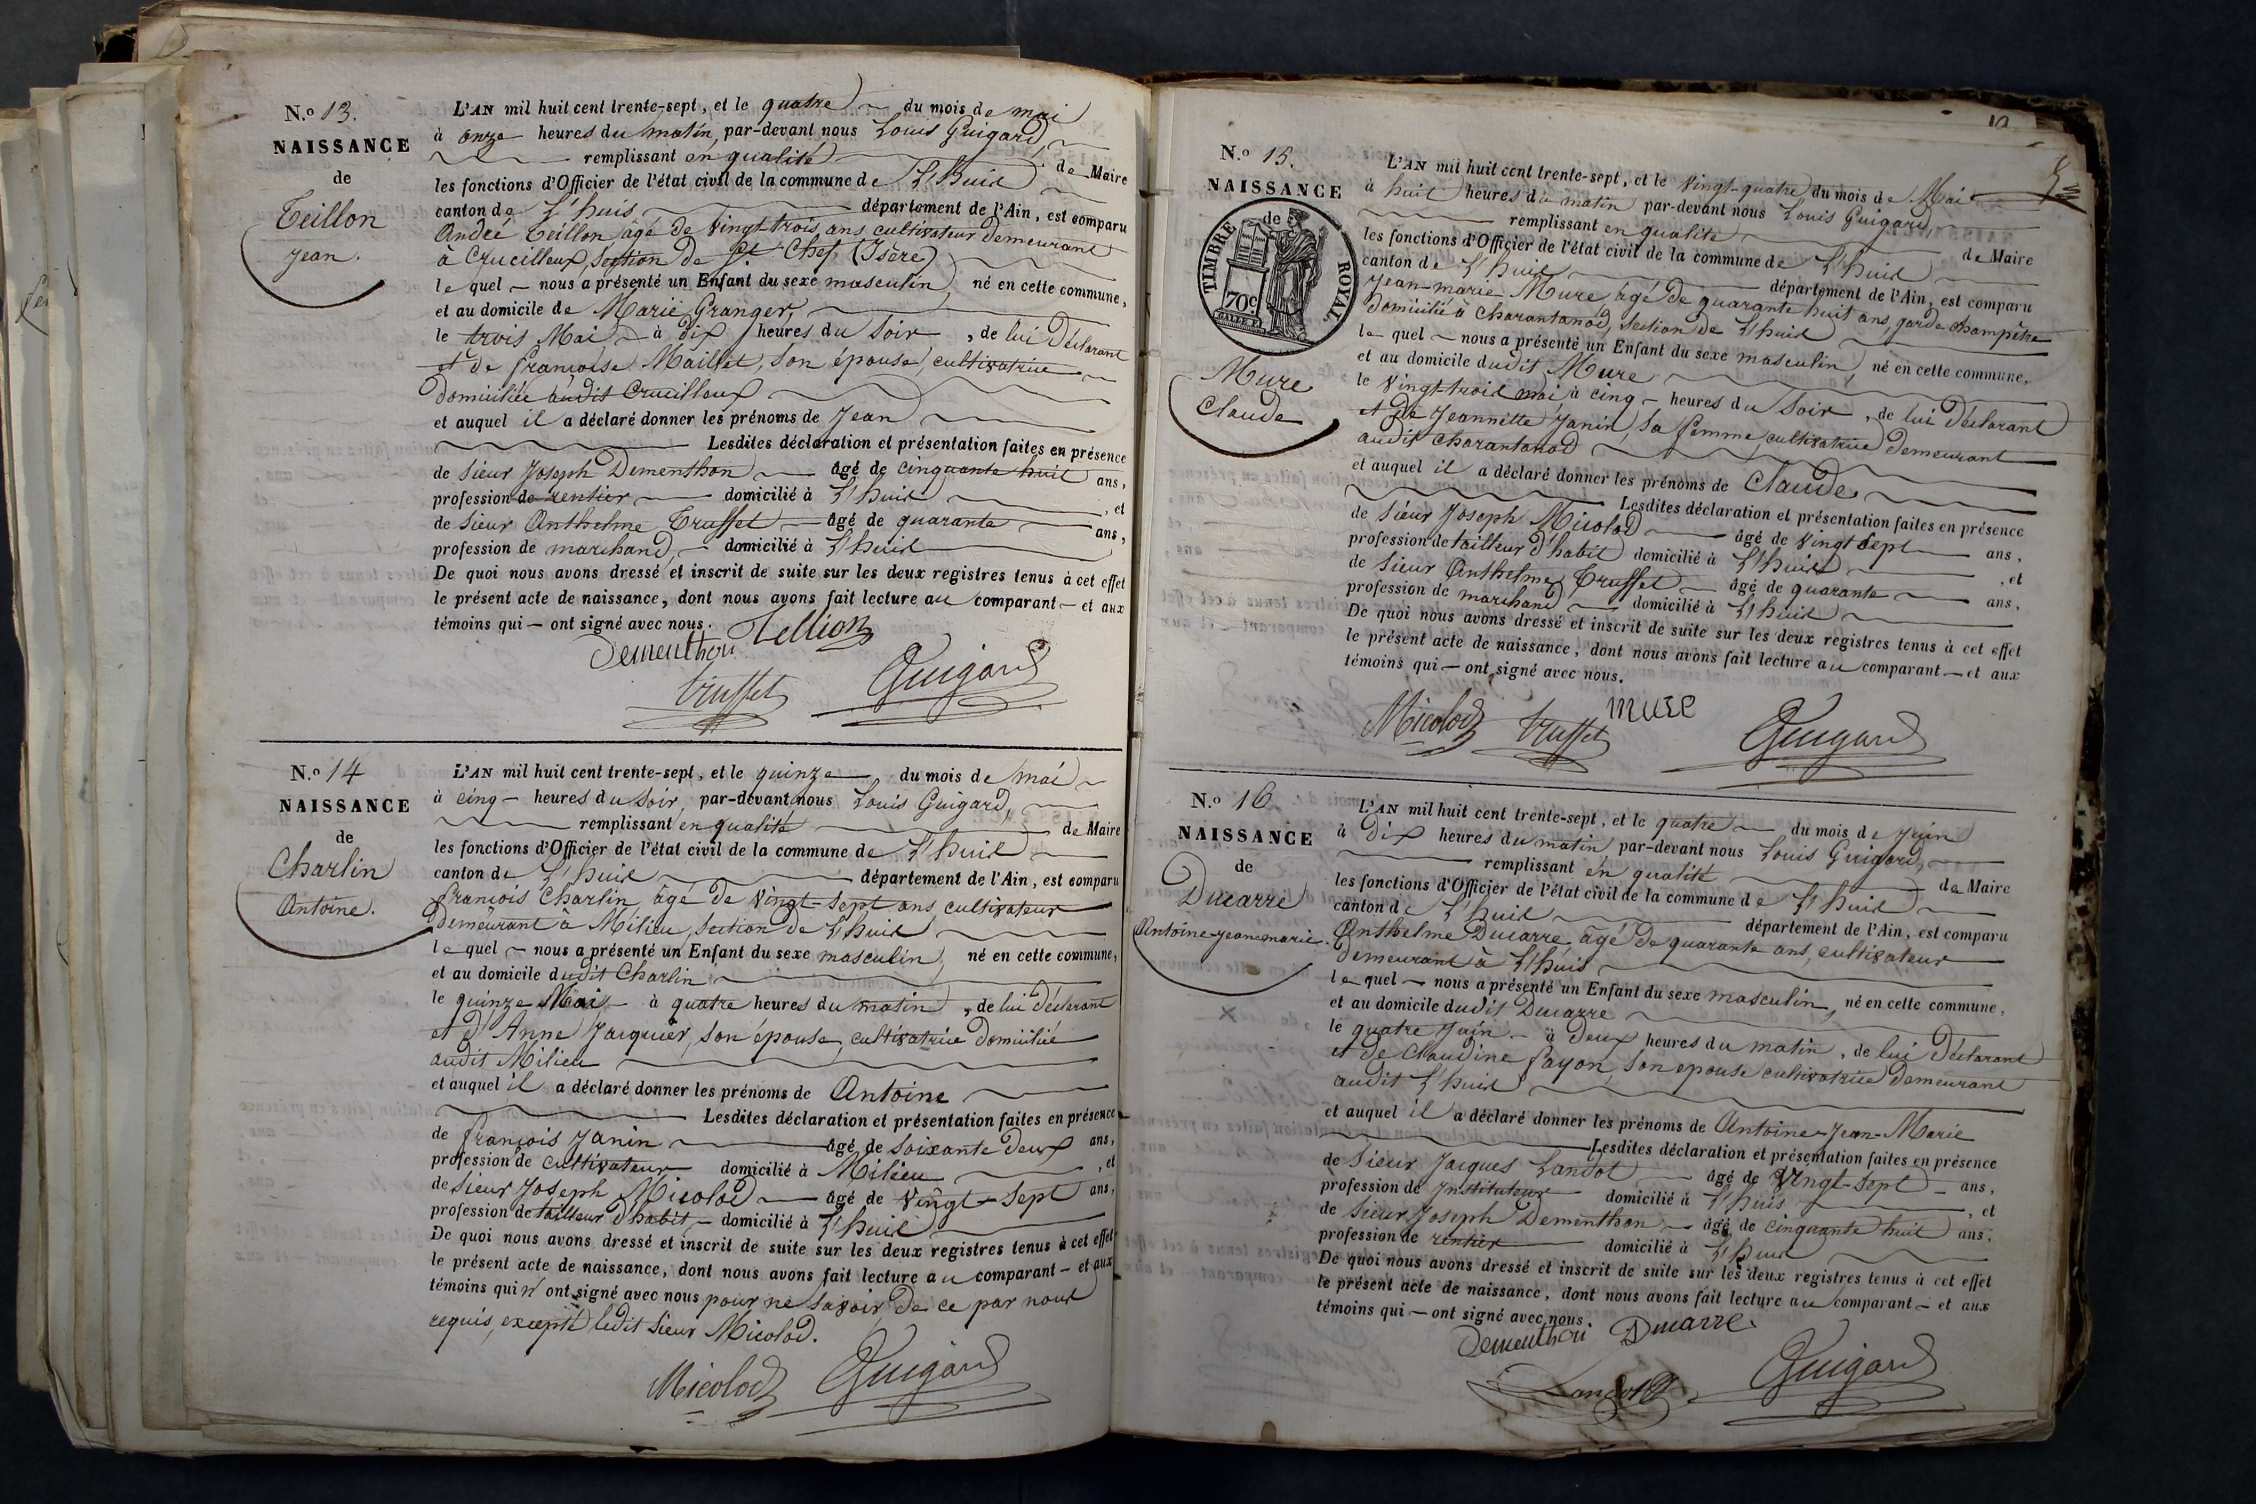 N.o 13.
NAISSANCE
de
Teillon
Jean.
L'AN mil huit cent trente-sept, et le quatre du mois de mai
à onze heures du matin, par-devant nous Louis Guigard,
remplissant en qualité de Maire
les fonctions d'Officier de l'état civil de la commune de L'huis
canton de L'huis département de l'Ain, est comparu
André Teillon âgé de vingt-trois ans cultivateur demeurant
à Crucilleux, section de St. Chef (Isère)
le quel — nous a présenté un Enfant du sexe masculin, né en cette commune,
et au domicile de Marie Granger,
le trois Mai à dix heures du soir, de lui déclarant
et de françoise Maillet, son épouse, cultivatrice
domiciliée audit Crucilleux
et auquel il a déclaré donner les prénoms de Jean
Lesdites déclaration et présentation faites en présence
de sieur Joseph Dementhon âgé de cinquante huit ans,
profession de rentier domicilié à L'huis, et
de sieur Anthelme Truffet âgé de quarante ans,
profession de marchand, domicilié à L'huis
De quoi nous avons dressé et inscrit de suite sur les deux registres tenus à cet effet
le présent acte de naissance, dont nous avons fait lecture au comparant — et aux
témoins qui — ont signé avec nous.
Dementhon Tellion
truffet Guigard
N.o 14
NAISSANCE
de
Charlin
Antoine.
L'AN mil huit cent trente-sept, et le quinze du mois de mai
à cinq — heures du soir, par-devant nous Louis Guigard,
remplissant en qualité de Maire
les fonctions d'Officier de l'état civil de la commune de L'huis
canton de L'huis département de l'Ain, est comparu
françois Charlin, âgé de vingt-sept ans cultivateur
demeurant à Milieu, section de L'huis
le quel — nous a présenté un Enfant du sexe masculin, né en cette commune,
et au domicile dudit Charlin
le quinze Mai — à quatre heures du matin, de lui déclarant
et d'Anne Jacquier, son épouse, cultivatrice domiciliée
audit Milieu
et auquel il a déclaré donner les prénoms de Antoine
Lesdites déclaration et présentation faites en présence
de françois Janin âgé de soixante deux ans,
profession de cultivateur domicilié à Milieu, et
de sieur Joseph Micolod âgé de vingt-sept ans,
profession de tailleur d'habit, — domicilié à L'huis
De quoi nous avons dressé et inscrit de suite sur les deux registres tenus à cet effet
le présent acte de naissance, dont nous avons fait lecture au comparant — et aux
témoins qui n'ont signé avec nous pour ne savoir, de ce par nous
requis, excepté ledit sieur Micolod.
Micolod Guigard
N.o 15.
NAISSANCE
de
TIMBRE ROYAL
70c
Mure
Claude
L'AN mil huit cent trente-sept, et le vingt-quatre du mois de Mai
à huit heures du matin par-devant nous Louis Guigard
remplissant en qualité de Maire
les fonctions d'Officier de l'état civil de la commune de L'huis
canton de L'huis département de l'Ain, est comparu
Jean-marie Mure, âgé de quarante huit ans, garde champêtre
domicilié à Charantonod, section de L'huis
le quel — nous a présenté un Enfant du sexe masculin, né en cette commune,
et au domicile dudit Mure
le vingt-trois mai à cinq — heures du soir, de lui déclarant
et de Jeannette Janin, sa femme, cultivatrice demeurant
audit Charantonod
et auquel il a déclaré donner les prénoms de Claude
Lesdites déclaration et présentation faites en présence
de sieur Joseph Micolod âgé de vingt sept ans,
profession de tailleur d'habit domicilié à L'huis, et
de sieur Anthelme Truffet âgé de quarante ans,
profession de marchand domicilié à L'huis
De quoi nous avons dressé et inscrit de suite sur les deux registres tenus à cet effet
le présent acte de naissance, dont nous avons fait lecture au comparant — et aux
témoins qui — ont signé avec nous.
Micolod truffet mure Guigard
N.o 16
NAISSANCE
de
Ducarre
Antoine-Jean-marie.
L'AN mil huit cent trente-sept, et le quatre du mois de juin
à dix heures du matin par-devant nous Louis Guigard,
remplissant en qualité de Maire
les fonctions d'Officier de l'état civil de la commune de L'huis
canton de L'huis département de l'Ain, est comparu
Anthelme Ducarre, âgé de quarante ans, cultivateur
demeurant à L'huis
le quel — nous a présenté un Enfant du sexe masculin, né en cette commune,
et au domicile dudit Ducarre
le quatre Juin — à deux heures du matin, de lui déclarant
et de Claudine fayon, son épouse cultivatrice demeurant
audit L'huis
et auquel il a déclaré donner les prénoms de Antoine-Jean-Marie
Lesdites déclaration et présentation faites en présence
de sieur Jacques Landot âgé de vingt-sept — ans,
profession de Instituteur domicilié à L'huis, et
de sieur Joseph Dementhon âgé de cinquante huit ans,
profession de rentier domicilié à L'huis
De quoi nous avons dressé et inscrit de suite sur les deux registres tenus à cet effet
le présent acte de naissance, dont nous avons fait lecture au comparant — et aux
témoins qui — ont signé avec nous.
Dementhon Ducarre
Landot Guigard